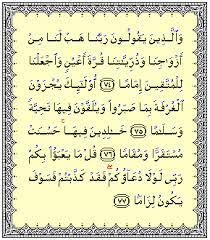 وَٱلَّذِينَ يَقُولُونَ رَبَّنَا هَبْ لَنَا مِنْ
أَزْوَٰجِنَا وَذُرِّيَّٰتِنَا قُرَّةَ أَعْيُنٍ وَٱجْعَلْنَا
لِلْمُتَّقِينَ إِمَامًا ﴿٧٤﴾ أُو۟لَٰٓئِكَ يُجْزَوْنَ
ٱلْغُرْفَةَ بِمَا صَبَرُوا۟ وَيُلَقَّوْنَ فِيهَا تَحِيَّةً
وَسَلَٰمًا ﴿٧٥﴾ خَٰلِدِينَ فِيهَا ۚ حَسُنَتْ
مُسْتَقَرًّا وَمُقَامًا ﴿٧٦﴾ قُلْ مَا يَعْبَؤُا۟ بِكُمْ
رَبِّى لَوْلَا دُعَآؤُكُمْ ۖ فَقَدْ كَذَّبْتُمْ فَسَوْفَ
يَكُونُ لِزَامًا ﴿٧٧﴾